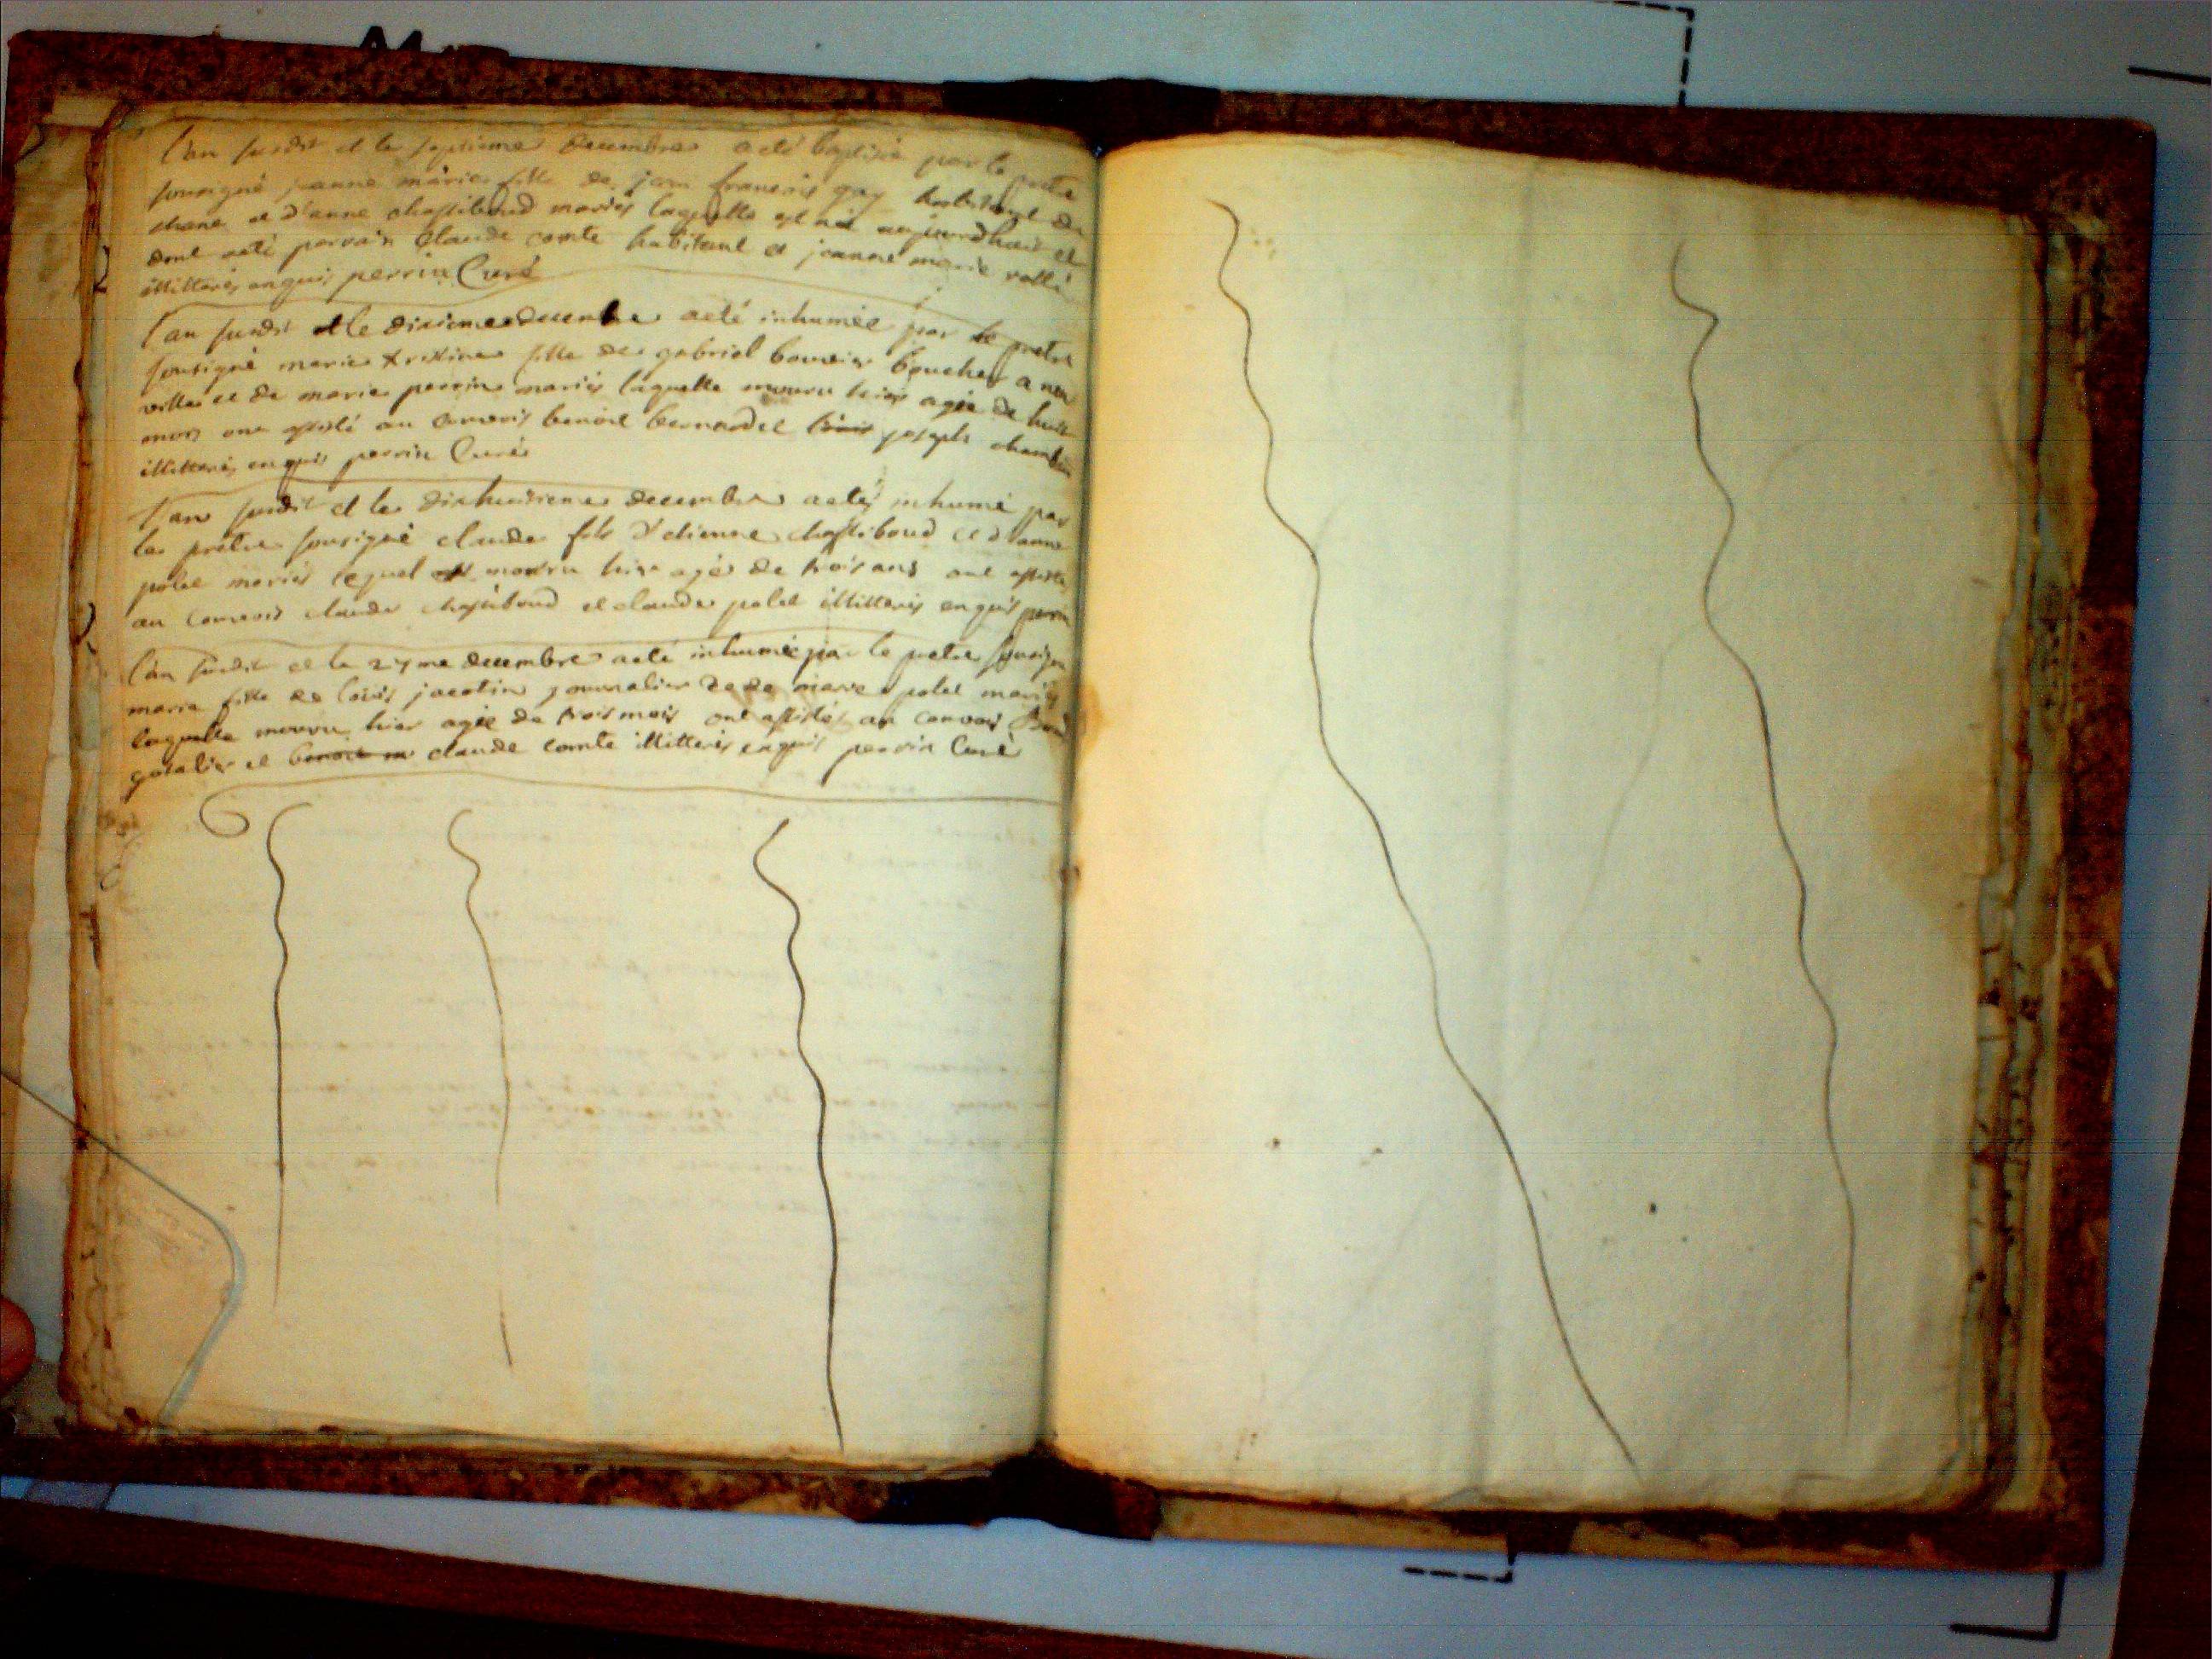 l'an susdit et le septieme decembre a eté baptisée par le pretre
sousigné jeanne marie fille de jean francois gay habitant de
et d'anne chastiboud mariés laquelle est née aujourdhuit et
dont eté parrain Claude comte habitant et jeanne marie rollé
illitterés enquis perrin Curé
l'an susdit et le dixieme decembre a eté inhumée par le pretre
sousigné marie fille de gabriel bouvier boucher a neu
ville et de marie perrin mariés laquelle mouru hier agée de huit
mois ont assisté au convois benoit bernardet joseph
illitterés enquis perrin Curé
l'an susdit et le dixhuitieme decembre a eté inhumé par
le pretre sousigné claude fils d'etienne chastiboud et d'anne
polet mariés lequel mouru hier agé de trois ans ont assisté
au convois claude chastiboud et claude polet illitterés enquis perrin
l'an susdit et le 27me decembre a eté inhumée par le pretre sousigné
marie fille de louis jacotin journalier et de marie polet mariés
laquelle mouru hier agée de trois mois ont assistés au convois
et claude comte illitterés enquis perrin Curé